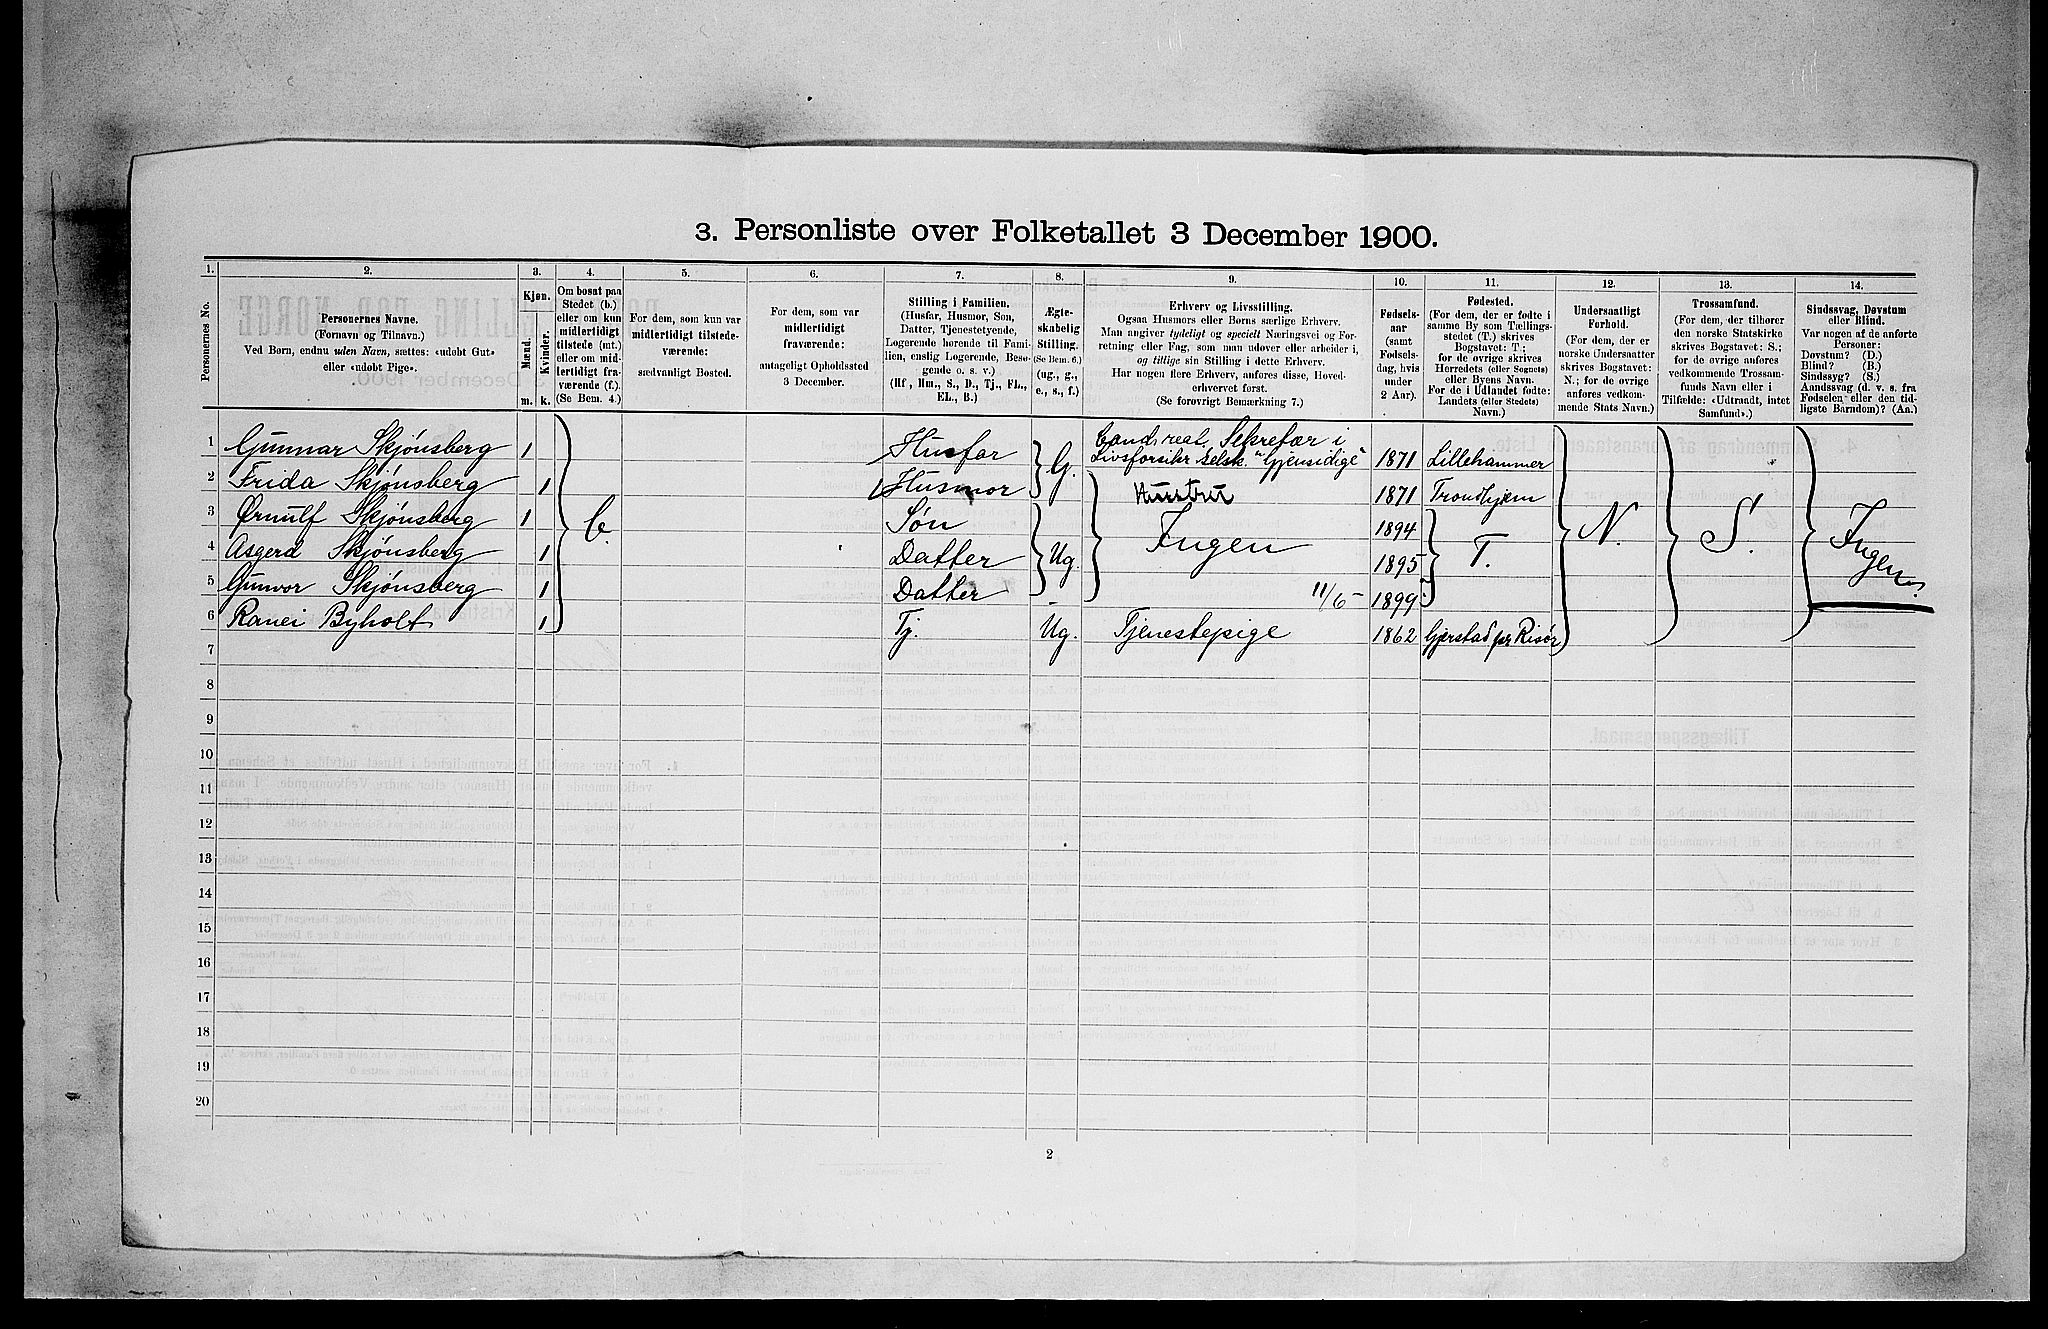 3. Personliste over Folketallet 3 December 1900.
1. 2. 3. 4. 5. 6. 7. 8. 9. 10. 11. 12. 13. 14.
Personernes No.
Personernes Navne.
(Fornavn og Tilnavn.)
Ved Børn, endnu uden Navn, sættes: «udøbt Gut»
eller «udøbt Pige».
Kjøn.
Mænd. Kvinder.
m. k.
Om bosat paa
Stedet (b.)
eller om kun
midlertidigt
tilstede (mt.)
eller om mid-
lertidigt fra-
værende (f.).
(Se Bem. 4.)
For dem, som kun var
midlertidigt tilstede-
værende:
sædvanligt Bosted.
For dem, som var
midlertidigt
fraværende:
antageligt Opholdssted
3 December.
Stilling i Familien.
(Husfar, Husmor, Søn,
Datter, Tjenestetyende,
Logerende hørende til Fami-
lien, enslig Logerende, Besø-
gende o. s. v.)
(Hf, Hm., S., D., Tj., FL.,
EL., B.)
Ægte-
skabelig
Stilling.
(Se Bem. 6.)
(ug., g.,
e., s., f.)
Erhverv og Livsstilling.
Ogsaa Husmors eller Børns særlige Erhverv.
Man angiver tydeligt og specielt Næringsvei og For-
retning eller Fag, som man udøver eller arbeider i,
og tillige sin Stilling i dette Erhverv.
Har nogen flere Erhverv, anføres disse, Hoved-
erhvervet først.
(Se forøvrigt Bemærkning 7.)
Fødsels-
aar
(samt
Fødsels-
dag, hvis
under
2 Aar).
Fødested.
(For dem, der er fødte i
samme By som Tællings-
stedet (T.) skrives
Bogstavet: T.;
for de øvrige skrives
Herredets (eller Sognets)
eller Byens Navn.
For de i Udlandet fødte:
Landets (eller Stedets)
Navn.)
Undersaatligt
Forhold.
(For dem, der er
norske Undersaatter
skrives Bogstavet:
N.; for de øvrige
anføres vedkom-
mende Stats Navn.)
Trossamfund.
(For dem, der tilhører
den norske Statskirke
skrives Bogstavet: S.;
for de øvrige anføres
vedkommende Trossam-
funds Navn eller i
Tilfælde: «Udtraadt, intet
Samfund».)
Sindssvag, Døvstum
eller Blind.
Var nogen af de anførte
Personer:
Døvstum? (D.)
Blind? (B.)
Sindssyg? (S.)
Aandssvag (d. v. s. fra
Fødselen eller den tid-
ligste Barndom)? (Aa.)
1 Gunnar Skjønsberg 1 b. Husfar G. Cand. real. Sekretær i Livsforsikr. selsk. "Gjensidige" 1871 Lillehammer N. S. Ingen.
2 Frida Skjønsberg 1 Husmor Hustru 1871 Trondhjem
3 Ørnulf Skjønsberg 1 Søn Ug. Ingen 1894 T.
4 Asgerd Skjønsberg 1 Datter 1895
5 Gunvor Skjønsberg 1 Datter 11/6 - 1899
6 Ranei Byholt 1 Tj. Ug. Tjenestepige 1862 Gjerstad pr. Risør
7
8
9
10
11
12
13
14
15
16
17
18
19
20
2